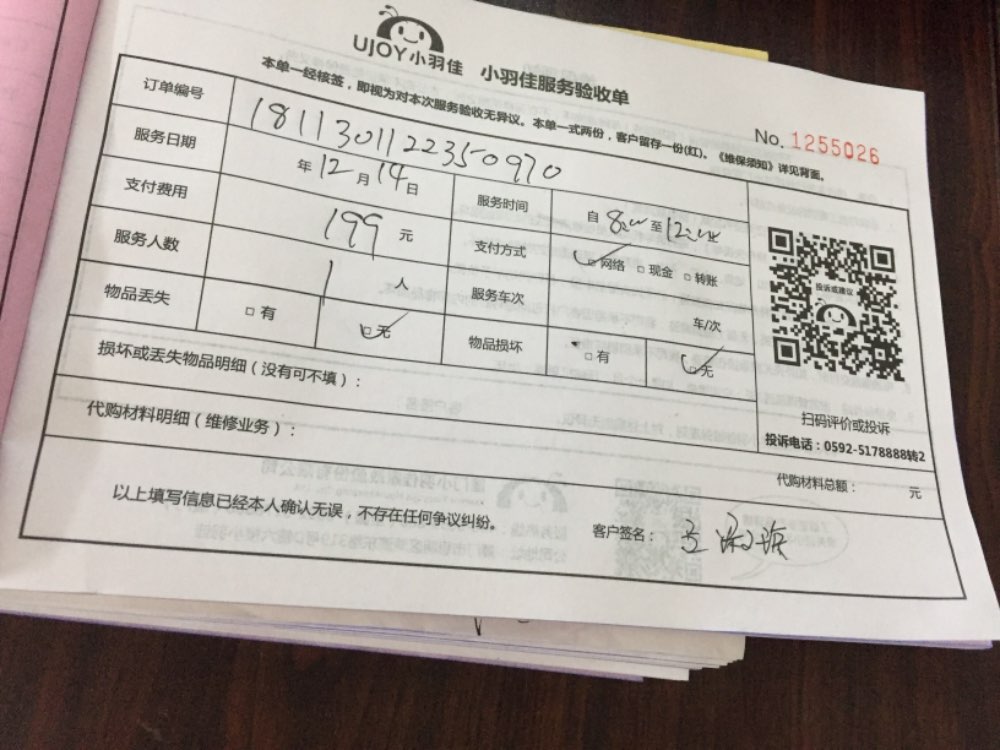 UJOY小羽佳 小羽佳服务验收单
No. 1255026
本单一经核签，即视为对本次服务验收无异议。本单一式两份，客户留存一份(红)。《维保须知》详见背面。
订单编号 1811301122350970
服务日期 年12月14日 服务时间 自8:00至12:00
支付费用 199元 支付方式 网络 现金 转账
服务人数 1人 服务车次 车/次
物品丢失 有 无 物品损坏 有 无
投诉或建议
扫码评价或投诉
投诉电话：0592-5178888转2
损坏或丢失物品明细（没有可不填）：
代购材料明细（维修业务）：
代购材料总额： 元
以上填写信息已经本人确认无误，不存在任何争议纠纷。 客户签名：